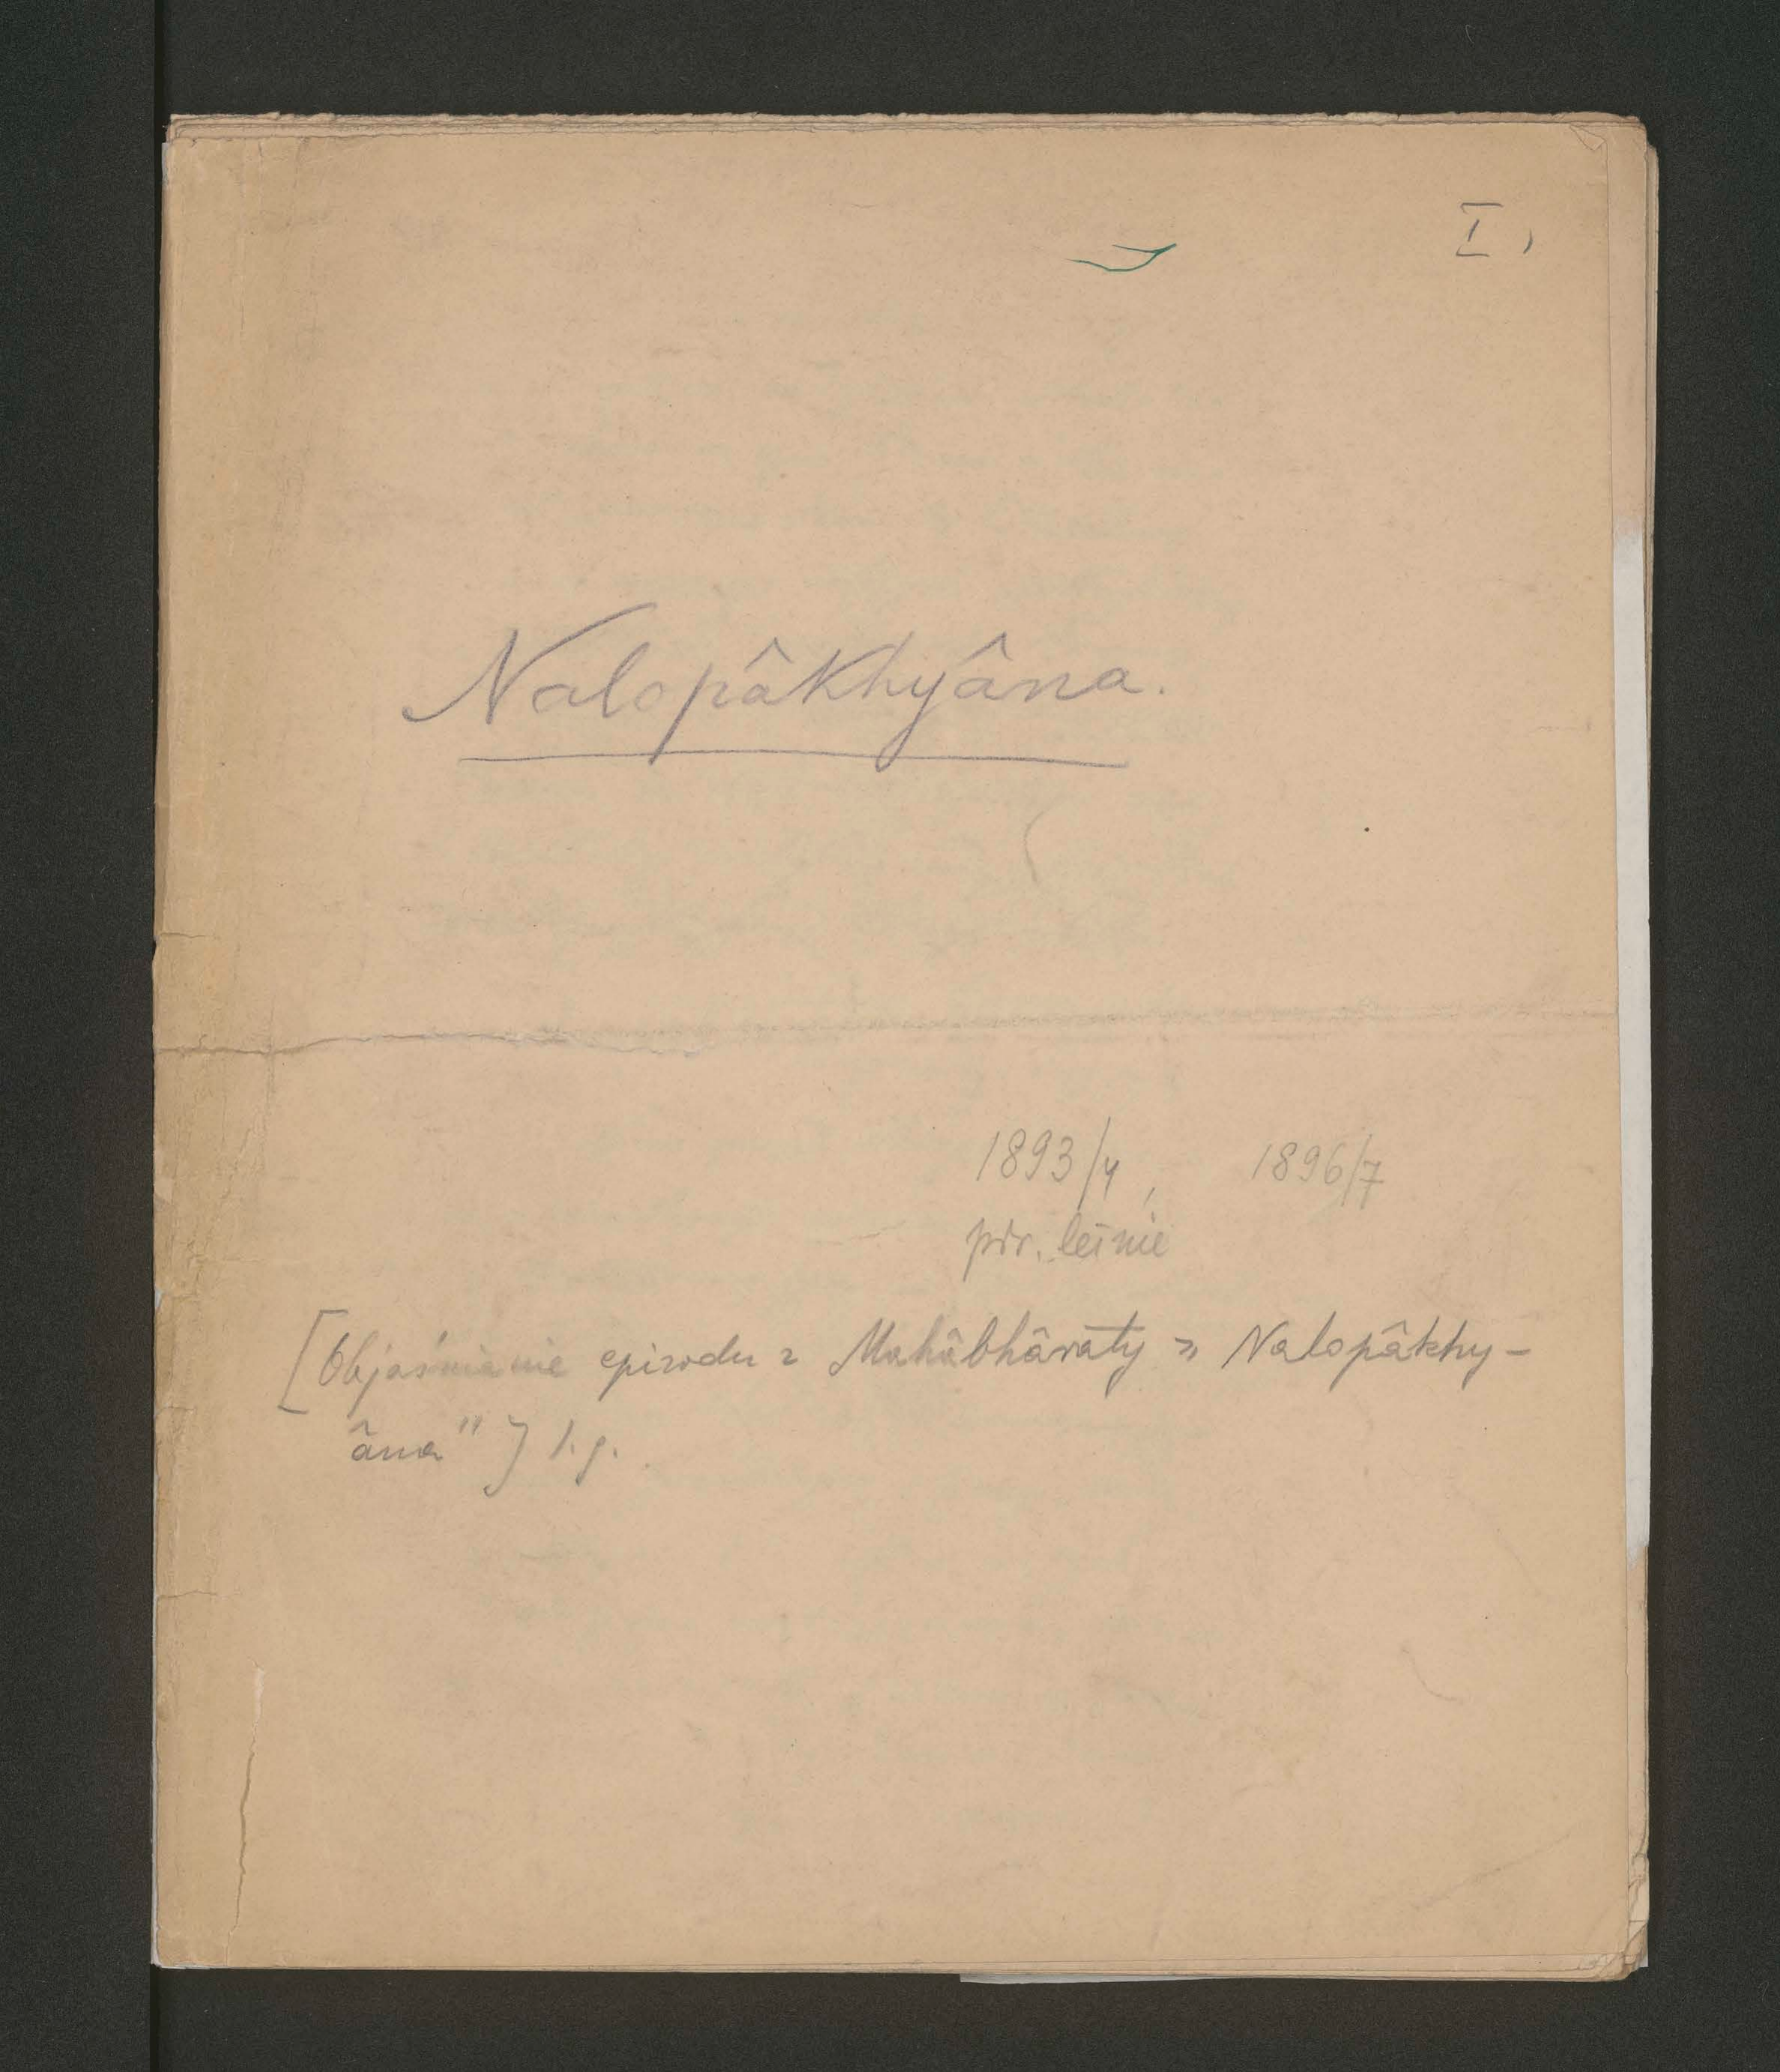 I,
Nalopâkhyâna.
1893/4, 1896/7
półr. letnie
[Objaśnianie epizodu z Mahâbhâraty „Nalopâkhy-
âna"] 1. g.